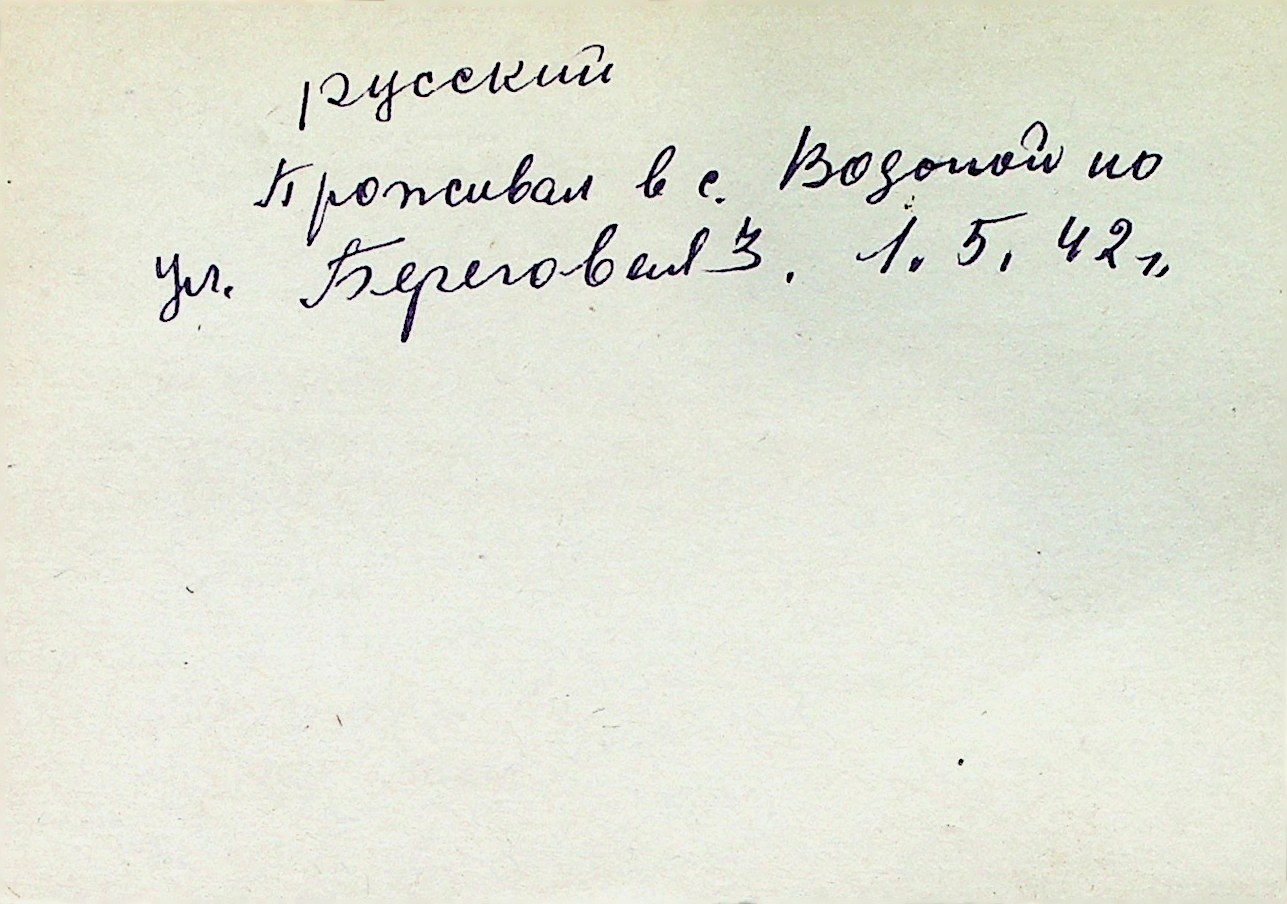 русский
Проживал в с. Водопой по
ул. Береговая 3. 1.5.42 г.